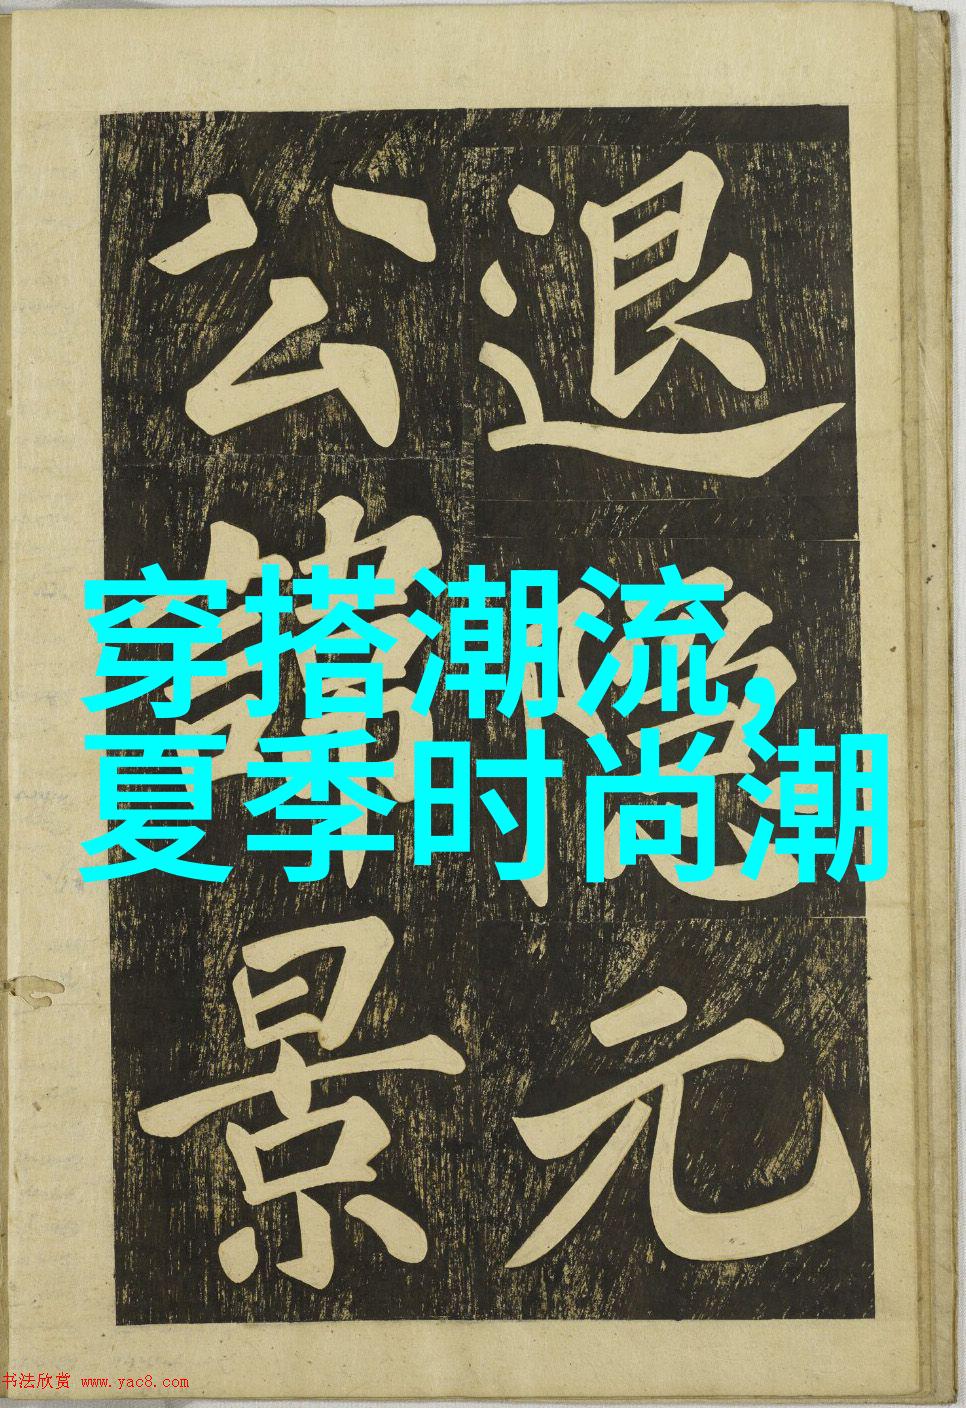 退
元
公
景
穿搭潮流,
夏季时尚潮
书法欣赏 www.yac8.com